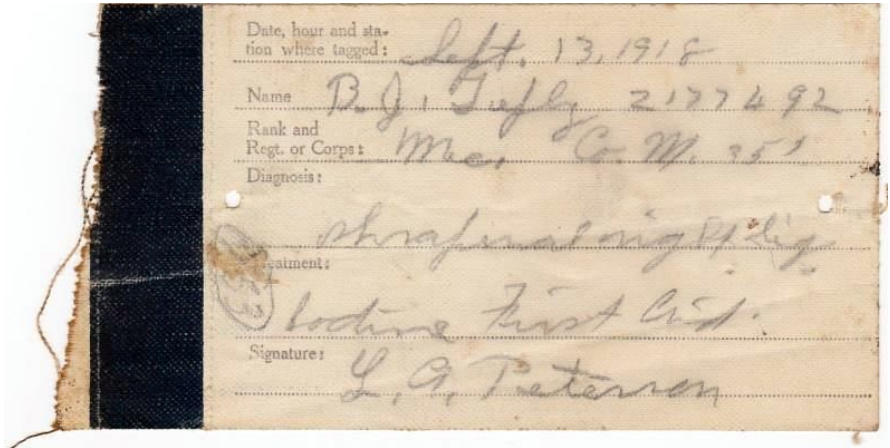 Date, hour and sta-
tion where tagged: Sept. 13, 1918
Name B. J. 2177492
Rank and
Regt. or Corps: Mec. Co. M. 35'
Diagnosis:
Rt Leg
eatment:
Iodine First Aid.
Signature:
L. A. Petersen